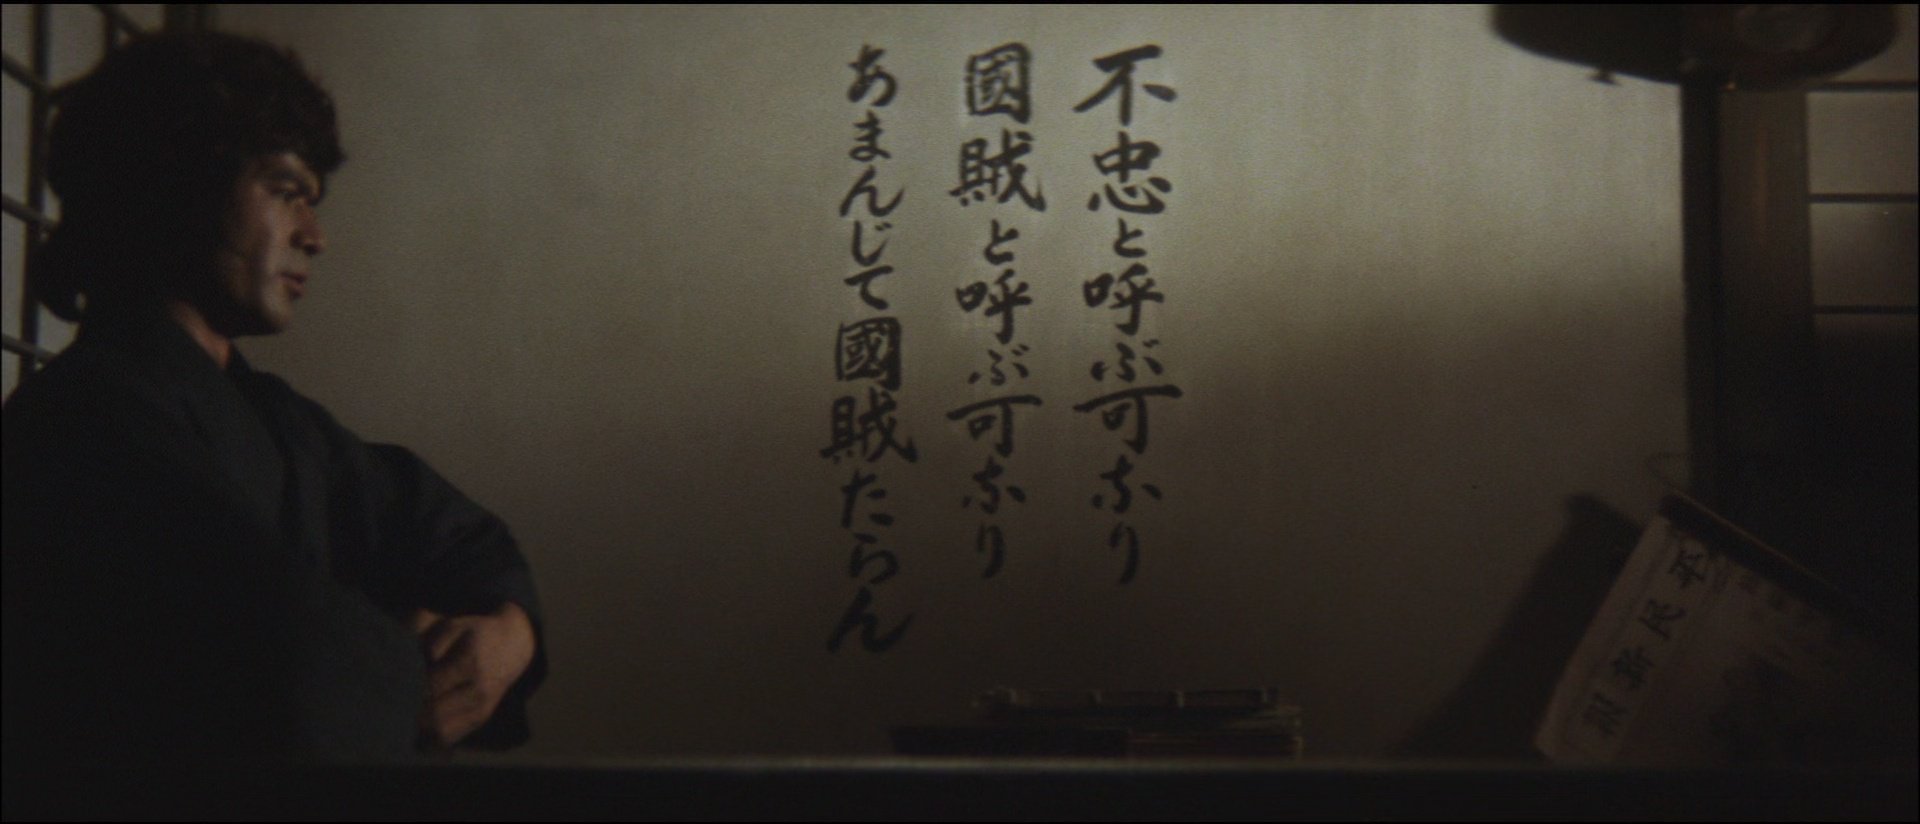 不忠と呼ぶ可なり
國賊と呼ぶ可なり
あまんじて國賊たらん